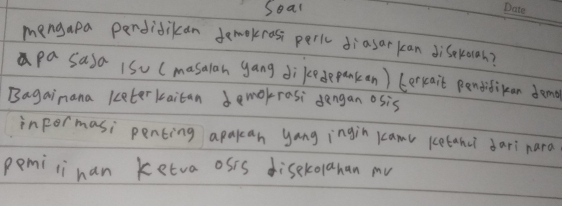 Soal Date
mengapa pendidikan demokrasi perlu diajarkan disekolah?
apa saja isu (masalah yang dikedepankan) terkait pendidikan demo
Bagaimana keterkaitan demokrasi dengan osis
informasi penting apakah yang ingin kamu ketahui dari nara
pemilihan ketua osis disekolahan mu